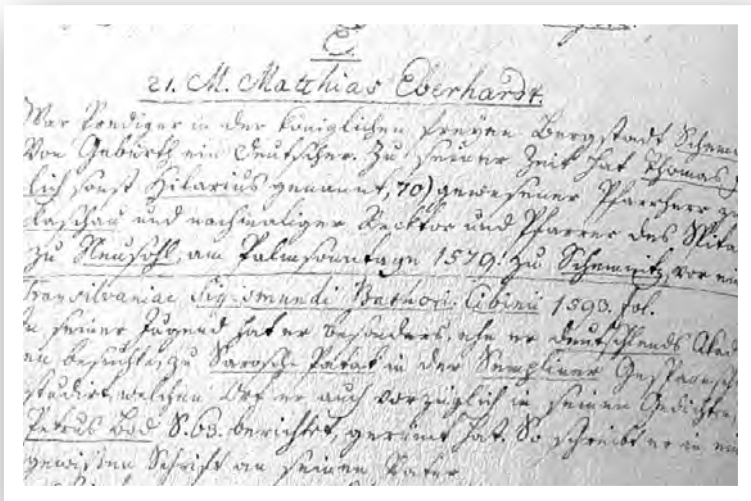 E.
21. M. Matthias Eberhardt.
War Prediger in der Königlichen freyen Bergstadt
Von Gebürth ein Deutscher. Zu seiner Zeit hat Thomas
lich sonst Hilarius genannt, 70) gewesener Pfarrherr zu
Kaschau und nachmaliger Recktor und Pfarrer des
zu Neusohl, am Palmsonntage 1579. zu Schemnitz, vor
Transilvaniae Sigismundi Bathori. Cibinii 1593. fol.
seiner Jugend hat er besonders, ehe er Deutschlands
en besuchte, zu Sarosch Patak in der Sempliner
studirt, welchen Ort er auch vorzüglich in seinen Gedichten,
Petrus Bod S. 63. berichtet, gerümt hat. So schreibt er in
gewissen Schrift an seinen Vater